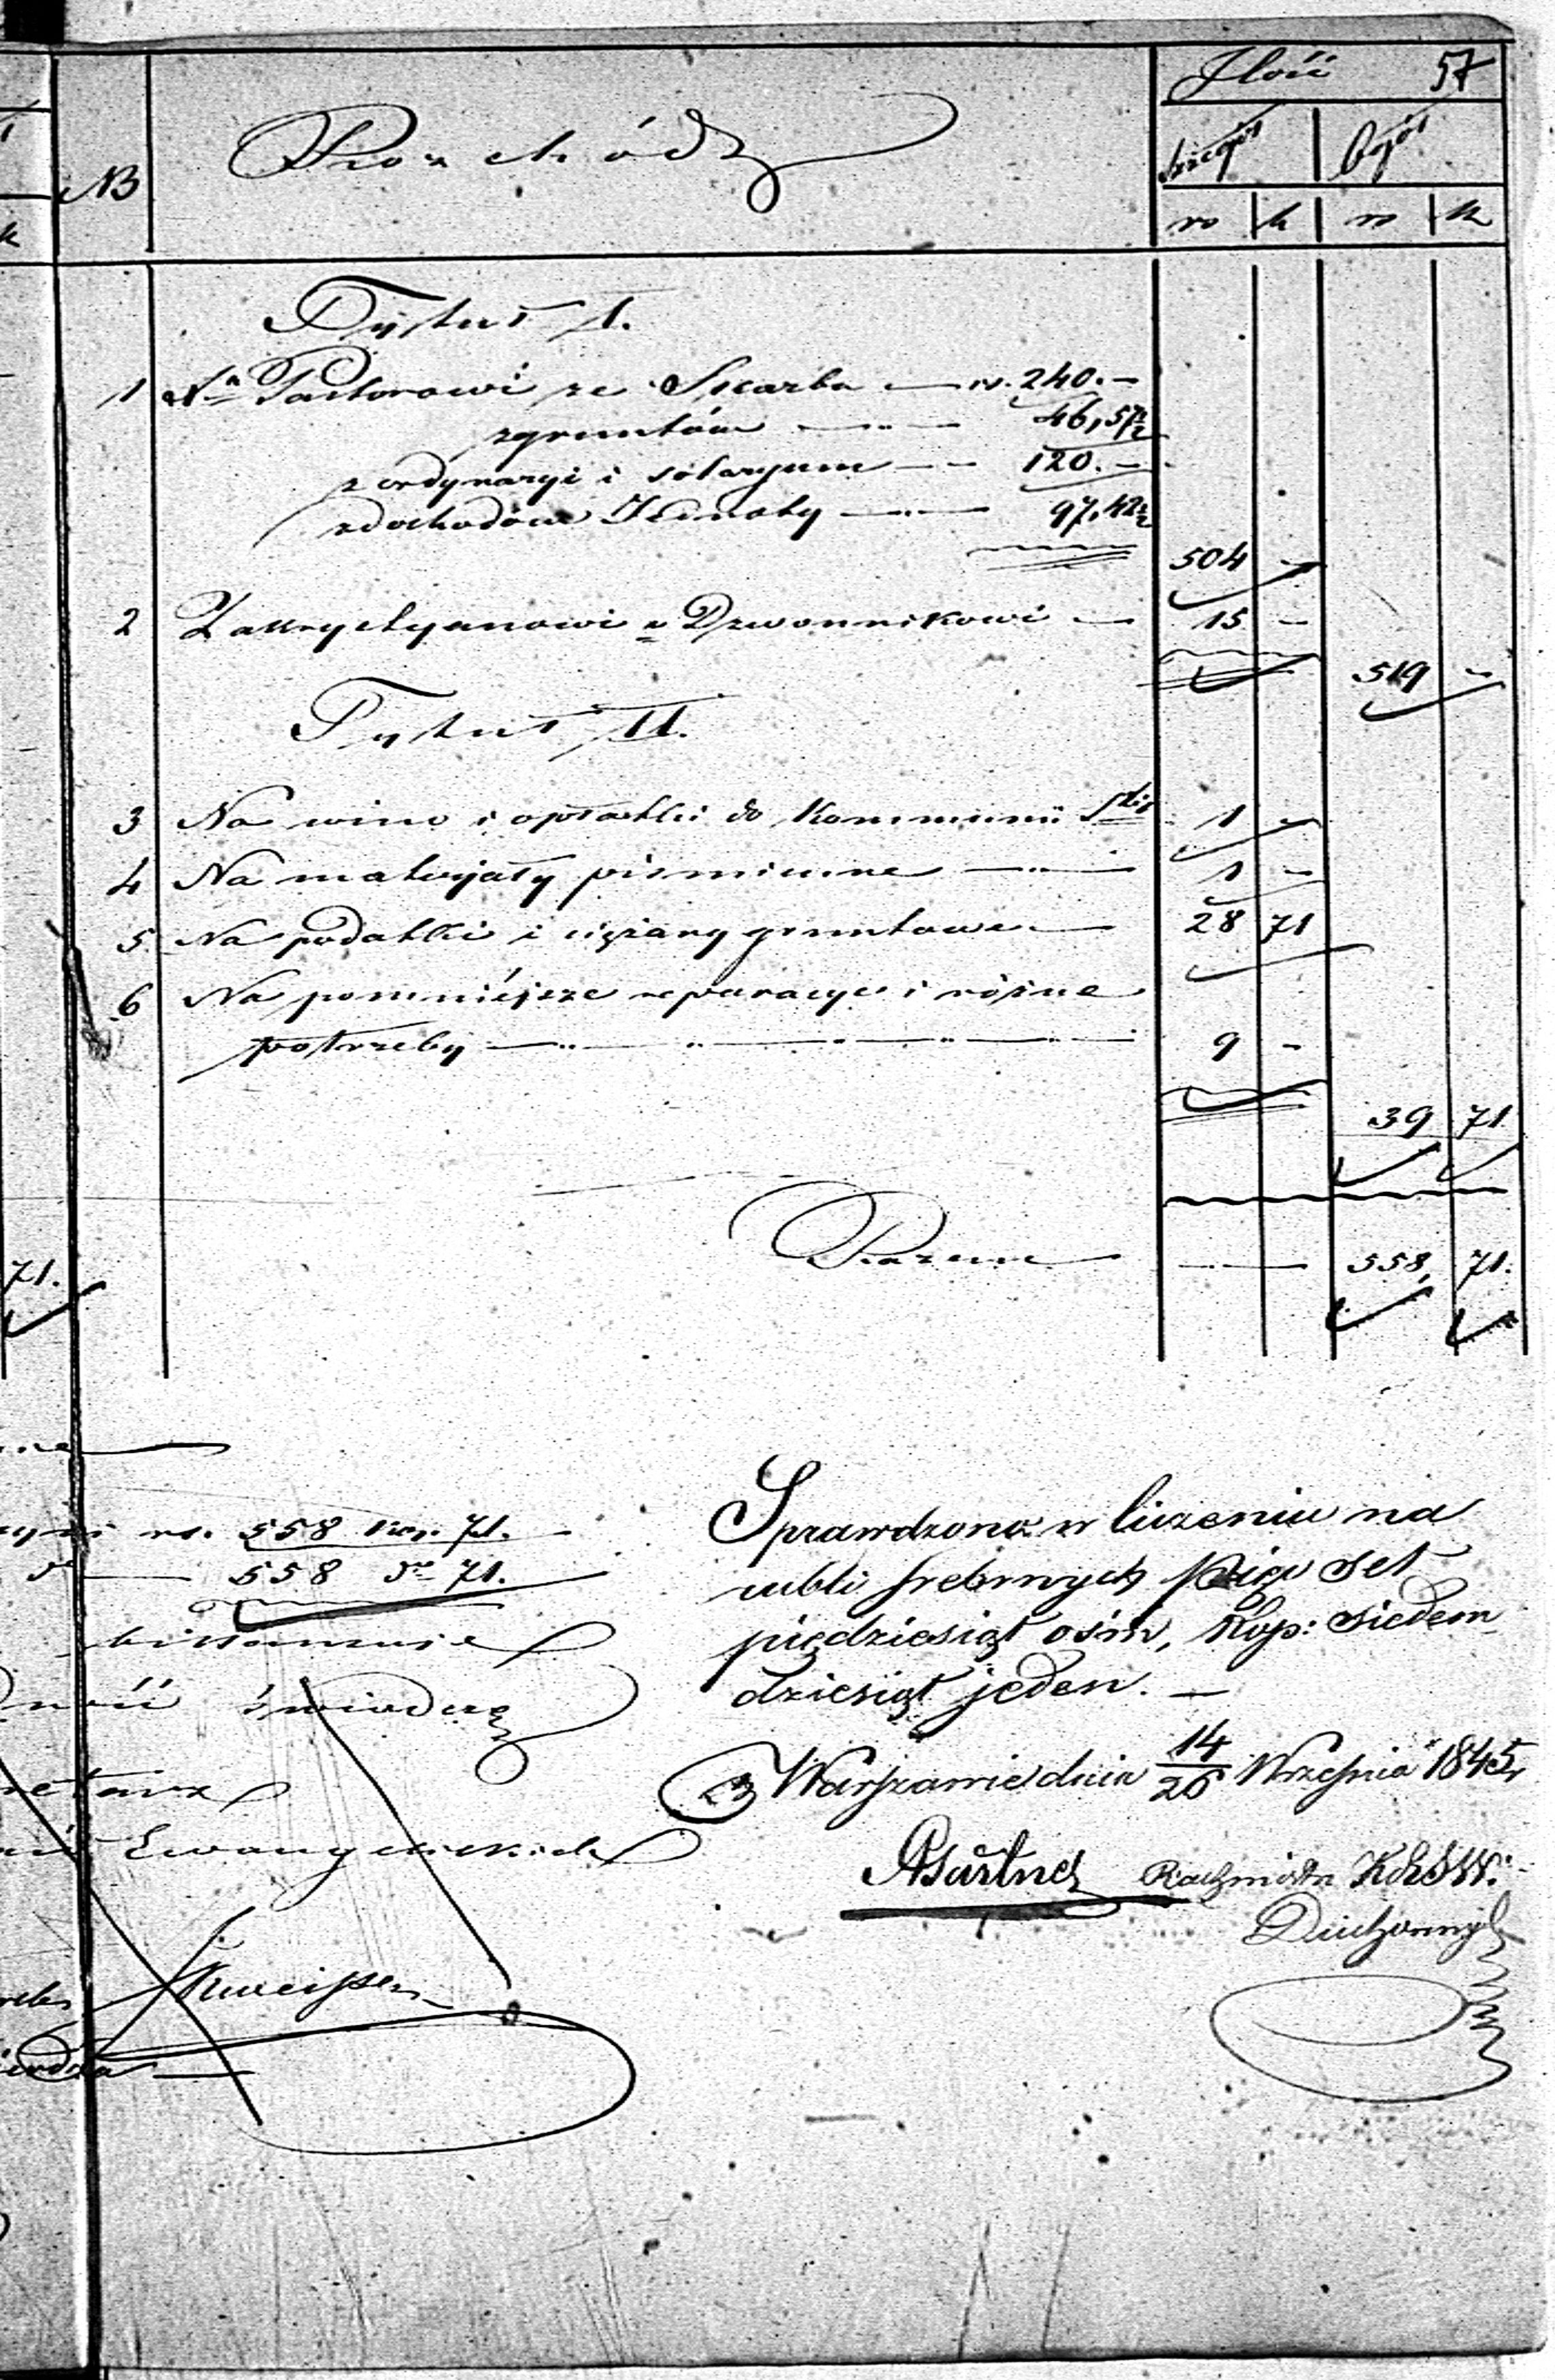 Ilość 57
NB Rozchód szczegół ogół
rs k rs k
Tytuł I.
1 Pastorowi ze Skarbu rs. 240. —
z gruntów 46,57½
z ordynaryi i solaryum 120. —
z dochodów Jednoty 97,42½
504 —
2 Zakrystyanowi Dzwonnikowi 15 —
519 —
Tytuł II.
3 Na wino i opłatki do Kommunii Stéj 1 —
4 Na materyały piśmienne 1 —
5 Na podatki i ciężary gruntowe 28 71
6 Na pomniéjsze reparacye i różne
potrzeby 9 —
39 71
Razem 558, 71.
71.
rs. 558 kop. 71.
558 do 71.
świadczę
Ewangelickich
Sprawdzono w liczeniu na
rubli srebrnych pięć set
piędziesiąt ośm, kop: siedem
dziesiąt jeden. —
w Warszawie dnia 14/26 Września 1845
Rachmistrz
Duchownych